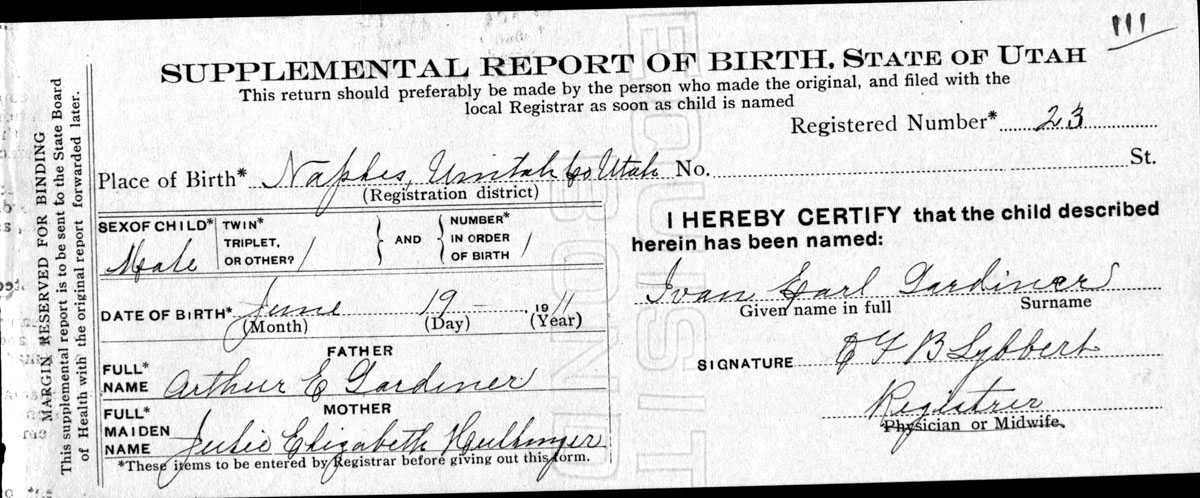 111
SUPPLEMENTAL REPORT OF BIRTH, STATE OF UTAH
This return should preferably be made by the person who made the original, and filed with the
local Registrar as soon as child is named
Registered Number* 23
Place of Birth* Naples, Uintah Co Utah No. St.
(Registration district)
SEX OF CHILD* TWIN* TRIPLET, OR OTHER? / } AND { NUMBER* IN ORDER OF BIRTH /
Male
DATE OF BIRTH* June 19 1911
(Month) (Day) (Year)
FATHER
FULL* NAME Arthur E Gardiner
MOTHER
FULL* MAIDEN NAME Julie Elizabeth
*These items to be entered by Registrar before giving out this form.
I HEREBY CERTIFY that the child described
herein has been named:
Ivan Earl Gardiner
Given name in full Surname
SIGNATURE B Lybbert
Registrer
Physician or Midwife.
MARGIN RESERVED FOR BINDING
This supplemental report is to be sent to the State Board
of Health with the original report forwarded later.